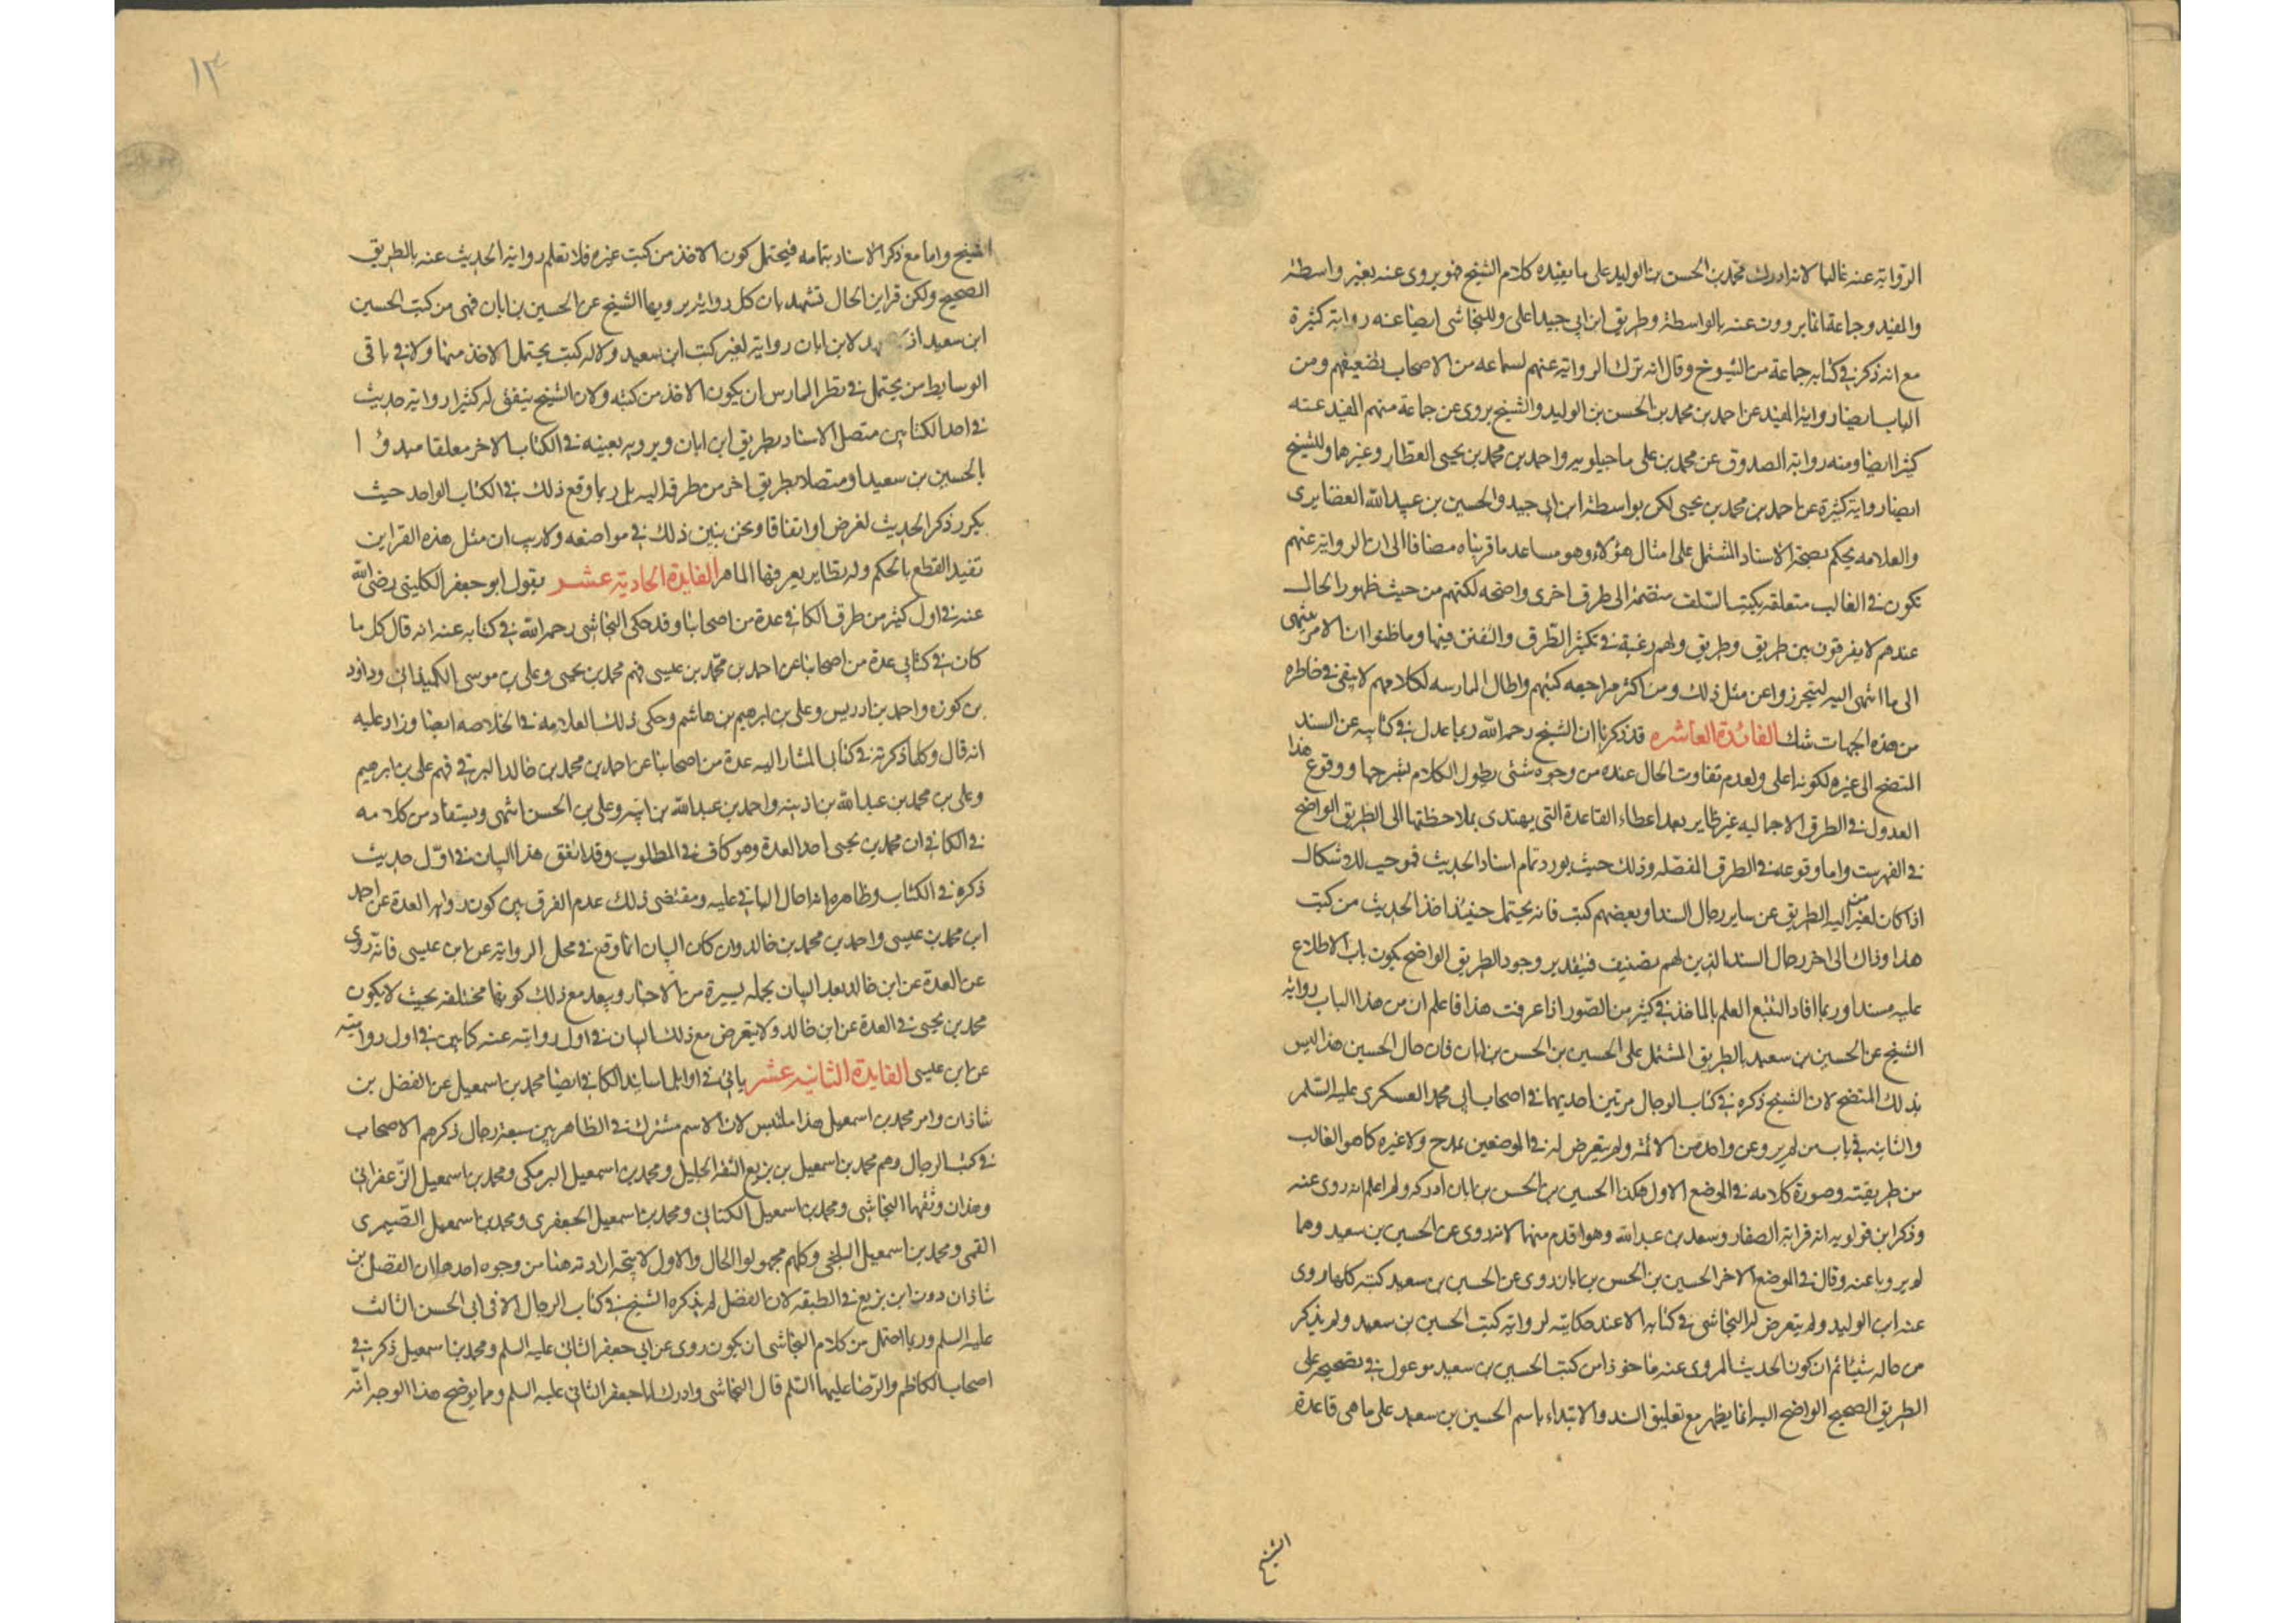 الرواية عنه غالبا لانه ادرك محمد بن الحسن بن الوليد على ما يفيده كلام الشيخ فهو يروى عنه بغير واسطة
والمفيد وجماعة انما يروون عنه بالواسطة وطريق ابن ابى جيد اعلى وللنجاشى ايضا عنه رواية كثيرة
مع انه ذكر فى كتابه جماعة من الشيوخ وقال انه ترك الرواية عنهم لسماعه من الاصحاب تضعيفهم ومن
الباب ايضا رواية المفيد عن احمد بن محمد بن الحسن بن الوليد والشيخ يروى عن جماعة منهم المفيد عنه
كثيرا ايضا ومنه رواية الصدوق عن محمد بن على ماجيلويه واحمد بن محمد بن يحيى العطار وغيرهما وللشيخ
ايضا رواية كثيرة عن احمد بن محمد بن يحيى لكن بواسطة ابن ابى جيد والحسين بن عبيد الله الغضايرى
والعلامه يحكم بصحة الاسناد المشتمل على امثال هؤلاء وهو مساعد ما قربناه مضافا الى ان الرواية عنهم
تكون فى الغالب متعلقه بكتب السلف منضمة الى طرق اخرى واضحه لكنهم من حيث ظهور الحال
عندهم لا يفرقون بين طريق وطريق ولهم رغبة فى تكثير الطرق والتفنن فيها وما ظنوا ان الامر ينتهى
الى ما انتهى اليه ليتحرزوا عن مثل ذلك ومن اكثر مراجعه كتبهم واطال الممارسه لكلامهم لا يبقى فى خاطره
من هذه الجهات شك الفائدة العاشره قد ذكرنا ان الشيخ رحمه الله ربما عدل فى كتابيه عن السند
المتضح الى غيره لكونه اعلى ولعدم تفاوت الحال عنده من وجوه شتى يطول الكلام بشرحها ووقوع هذا
العدول فى الطرق الاجماليه غير ضاير بعد اعطاء القاعدة التى يهتدى بملاحظتها الى الطريق الواضح
فى الفهرست واما وقوعه فى الطرق المفصله وذلك حيث يورد تمام اسناد الحديث فموجب للاشكال
اذا كان لغير من اليه الطريق عن ساير رجال السند او بعضهم كتب فانه يحتمل حينئذ اخذ الحديث من كتب
هذا وذاك الى اخر رجال السند الذين لهم تصنيف فبتقدير وجود الطريق الواضح يكون باب الاطلاع
عليه مسندا وربما افاد التتبع العلم بالماخذ فى كثير من الصور اذا عرفت هذا فاعلم ان من هذا الباب رواية
الشيخ عن الحسين بن سعيد بالطريق المشتمل على الحسين بن الحسن بن ابان فان حال الحسين هذا ليس
بذلك المتضح لان الشيخ ذكره فى كتاب الرجال مرتين احديهما فى اصحاب ابى محمد العسكرى عليه السلم
والثانيه فى باب من لم يرو عن واحد من الائمة ولم يتعرض له فى الموضعين بمدح ولا غيره كما هو الغالب
من طريقته وصورة كلامه فى الموضع الاول هكذا الحسين بن الحسن بن ابان ادركه ولم اعلم انه روى عنه
وذكر ابن قولويه انه قرابة الصفار وسعد بن عبد الله وهو اقدم منهما لانه روى عن الحسين بن سعيد وهما
لم يرويا عنه وقال فى الموضع الاخر الحسين بن الحسن بن ابان روى عن الحسين بن سعيد كتبه كلها روى
عنه ابن الوليد ولم يتعرض له النجاشى فى كتابه الا عند حكايته لرواية كتب الحسين بن سعيد ولم يذكر
من حاله شيئا ثم ان كون الحديث المروى عنه ماخوذا من كتب الحسين بن سعيد معول فى تصحيحه على
الطريق الصحيح الواضح اليه انما يظهر مع تعليق السند والابتداء باسم الحسين بن سعيد على ما هى قاعدة
الشيخ
١٣
الشيخ واما مع ذكر الاسناد بتمامه فيحتمل كون الاخذ من كتب غيره فلا تعلم رواية الحديث عنه بالطريق
الصحيح ولكن قراين الحال تشهد بان كل رواية يرويها الشيخ عن الحسين بن ابان فهى من كتب الحسين
ابن سعيد اذ لابن ابان رواية لغير كتب ابن سعيد ولا له كتب يحتمل الاخذ منها ولا فى باقى
الوسايط من يحتمل فى نظر الممارس ان يكون الاخذ من كتبه ولان الشيخ يتفق له كثيرا رواية حديث
فى احد الكتابين متصل الاسناد بطريق ابن ابان ويرويه بعينه فى الكتاب الاخر معلقا مبدوءا
بالحسين بن سعيد او متصلا بطريق اخر من طرقه اليه بل ربما وقع ذلك فى الكتاب الواحد حيث
يكرر ذكر الحديث لغرض او اتفاقا ونحن نبين ذلك فى مواضعه ولا ريب ان مثل هذه القراين
تفيد القطع بالحكم وله نظاير يعرفها الماهر الفايدة الحادية عشر يقول ابو جعفر الكلينى رضى الله
عنه فى اول كثير من طرق الكافى عدة من اصحابنا وقد حكى النجاشى رحمه الله فى كتابه عنه انه قال كل ما
كان فى كتابى عدة من اصحابنا عن احمد بن محمد بن عيسى فهم محمد بن يحيى وعلى بن موسى الكميذانى وداود
بن كوزه واحمد بن ادريس وعلى بن ابرهيم بن هاشم وحكى ذلك العلامه فى الخلاصه ايضا وزاد عليه
انه قال وكلما ذكرته فى كتابى المشار اليه عدة من اصحابنا عن احمد بن محمد بن خالد البرقى فهم على بن ابرهيم
وعلى بن محمد بن عبد الله بن اذينه واحمد بن عبد الله بن ابنه وعلى بن الحسن انتهى ويستفاد من كلامه
فى الكافى ان محمد بن يحيى احد العدة وهو كاف فى المطلوب وقد اتفق هذا البيان فى اول حديث
ذكره فى الكتاب وظاهره احال الباقى عليه ومقتضى ذلك عدم الفرق بين كون رواية العدة عن احمد
ابن محمد بن عيسى واحمد بن محمد بن خالد وان كان البيان انما وقع فى محل الرواية عن ابن عيسى فانه روى
عن العدة عن ابن خالد بعد البيان بجملة يسيرة من الاخبار ويبعد مع ذلك كونها مختلفه بحيث لا يكون
محمد بن يحيى فى العدة عن ابن خالد ولا يتعرض مع ذلك لبيان فى اول روايته عنه كما بين فى اول روايته
عن ابن عيسى الفايدة الثانيه عشر ياتى فى اوايل اسانيد الكافى ايضا محمد بن اسمعيل عن الفضل بن
شاذان وامر محمد بن اسمعيل هذا ملتبس لان الاسم مشترك فى الظاهر بين سبعة رجال ذكرهم الاصحاب
فى كتب الرجال وهم محمد بن اسمعيل بن بزيع الثقة الجليل ومحمد بن اسمعيل البرمكى ومحمد بن اسمعيل الزعفرانى
وهذان وثقهما النجاشى ومحمد بن اسمعيل الكنانى ومحمد بن اسمعيل الجعفرى ومحمد بن اسمعيل الصيمرى
القمى ومحمد بن اسمعيل البلخى وكلهم مجهولوا الحال والاول لا يتجه ارادته هنا من وجوه احدها ان الفضل بن
شاذان دون ابن بزيع فى الطبقه لان الفضل لم يذكره الشيخ فى كتاب الرجال الا فى ابى الحسن الثالث
عليه السلم وربما احتمل من كلام النجاشى ان يكون روى عن ابى جعفر الثانى عليه السلم ومحمد بن اسمعيل ذكر فى
اصحاب الكاظم والرضا عليهما السلم قال النجاشى وادرك ابا جعفر الثانى عليه السلم ومما يوضح هذا الوجه انه